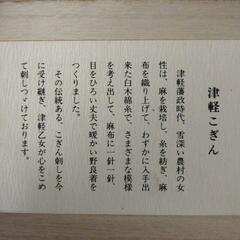 津軽こぎん
津軽藩政時代、雪深い農村の女
性は、麻を栽培し、糸を紡ぎ、麻
布を織り上げて、わずかに入手出
来た白木綿糸で、さまざまな模様
を考え出して、麻布に一針一針、
目をひろい丈夫で暖かい野良着を
つくりました。
その伝統ある、こぎん刺しを今
に受け継ぎ、津軽乙女が心をこめ
て刺しつゞけております。